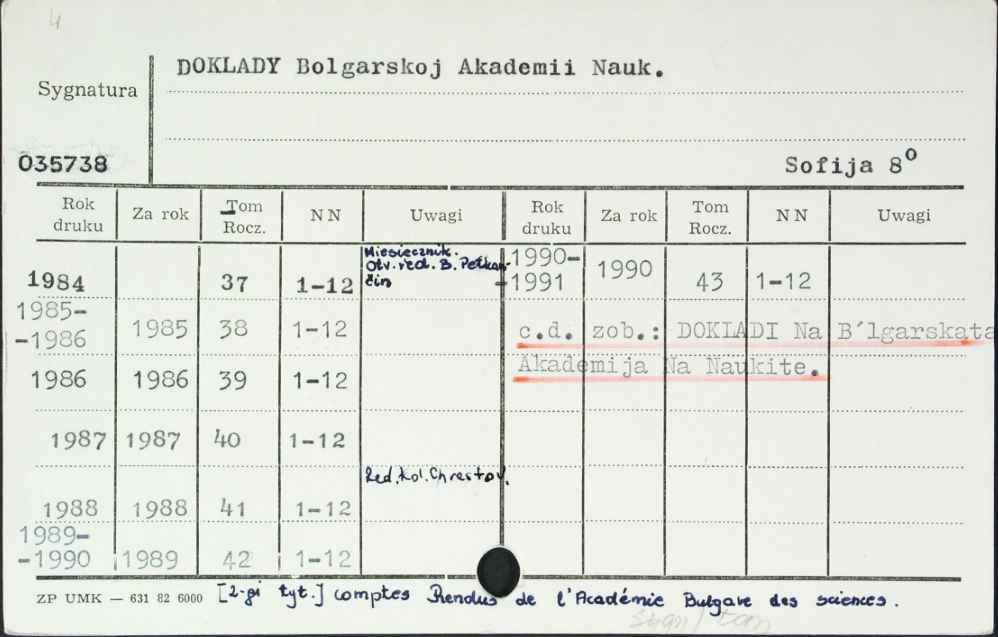 4
DOKLADY Bolgarskoj Akademii Nauk.
Sygnatura
035738
Sofija 8º
Rok druku | Za rok | Tom Rocz. | NN | Uwagi | Rok druku | Za rok | Tom Rocz. | NN | Uwagi
1984 | | 37 | 1-12 | Miesięcznik. Otv. red. B. Petkančin | 1990--1991 | 1990 | 43 | 1-12
1985--1986 | 1985 | 38 | 1-12
c.d. zob.: DOKLADI Na B´lgarskata
1986 | 1986 | 39 | 1-12
Akademija Na Naukite.
1987 | 1987 | 40 | 1-12
1988 | 1988 | 41 | 1-12 | Red. kol. Chrestov.
1989--1990 | 1989 | 42 | 1-12
ZP UMK — 631 82 6000 [2-gi tyt.] comptes Rendus de l'Académie Bulgare des sciences.